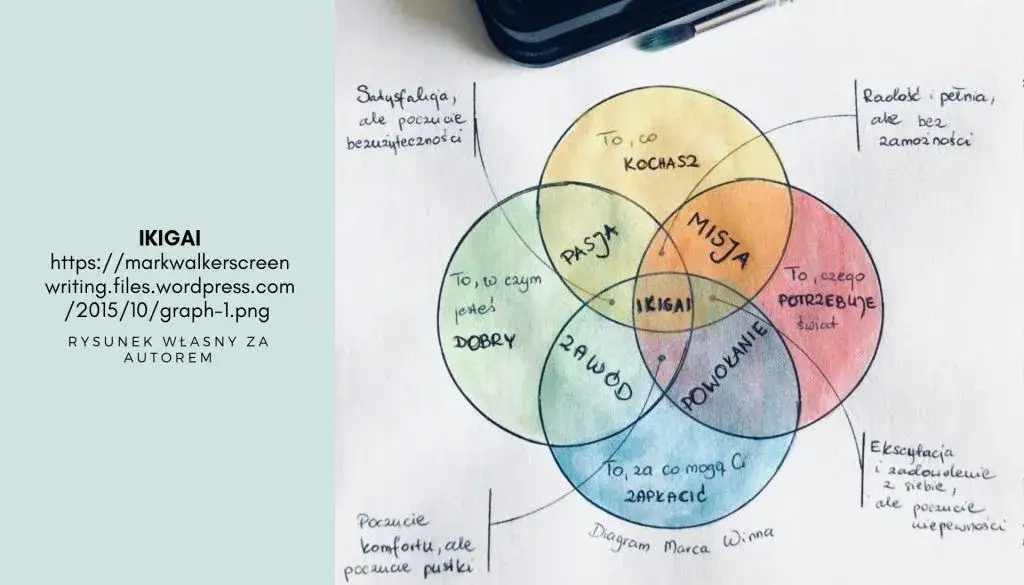 IKIGAI
https://markwalkerscreen
writing.files.wordpress.com
/2015/10/graph-1.png
RYSUNEK WŁASNY ZA
AUTOREM
Satysfakcja,
ale poczucie
bezużyteczności
Radość i pełnia,
ale bez
zamożności
To, co
KOCHASZ
PASJA
MISJA
To, w czym
jesteś
DOBRY
IKIGAI
To, czego
POTRZEBUJE
świat
ZAWÓD
POWOŁANIE
To, za co mogą Ci
ZAPŁACIĆ
Diagram Marca Winna
Poczucie
komfortu, ale
poczucie pustki
Ekscytacja
i zadowolenie
z siebie,
ale poczucie
niepewności